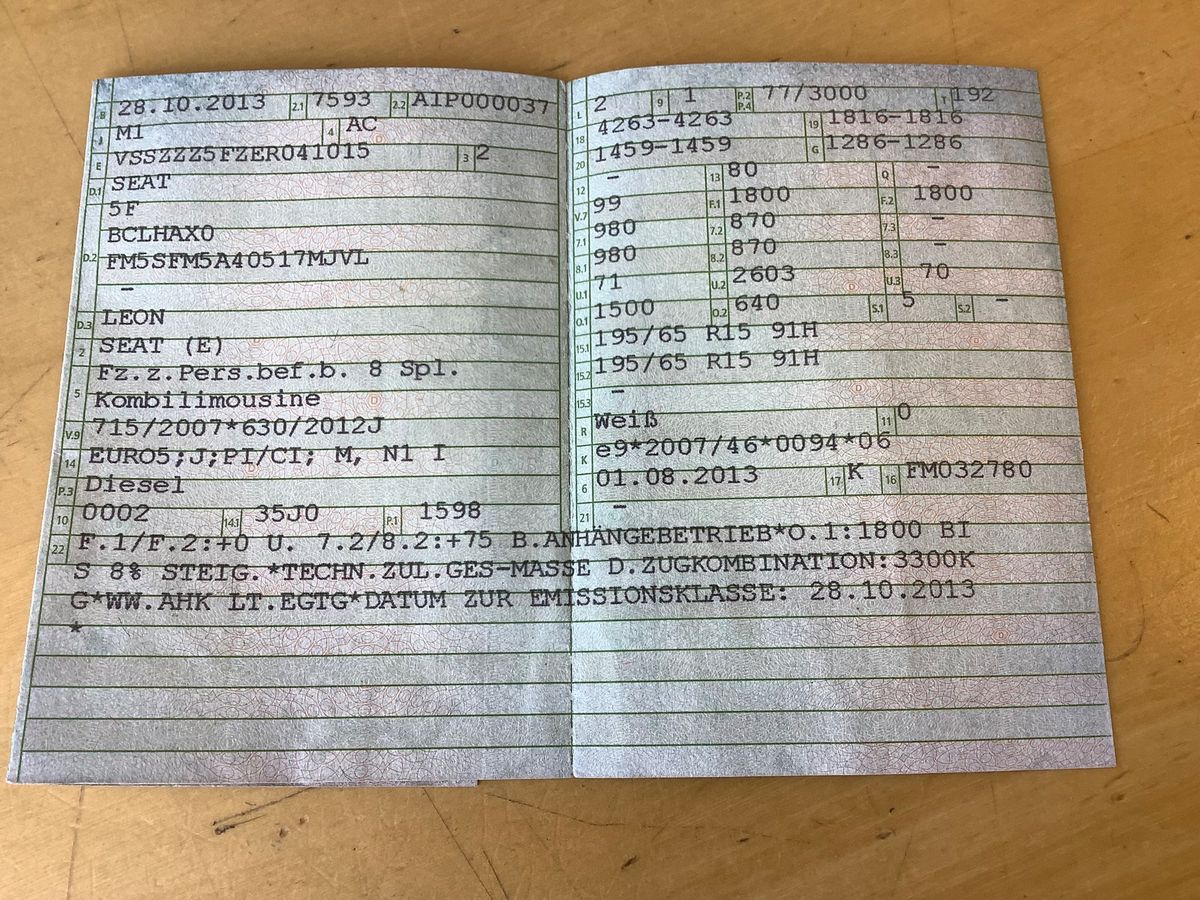 B 28.10.2013 2.1 7593 2.2 AIP000037
J M1 4 AC
E VSSZZZ5FZER041015 3 2
D.1 SEAT
5F
D.2 BCLHAX0
FM5SFM5A40517MJVL
–
D.3 LEON
2 SEAT (E)
5 Fz.z.Pers.bef.b. 8 Spl.
Kombilimousine
V.9 715/2007*630/2012J
14 EURO5;J;PI/CI; M, N1 I
P.3 Diesel
10 0002 14.1 35J0 P.1 1598
L 2 9 1 P.2 P.4 77/3000 T 192
18 4263-4263 19 1816-1816
20 1459-1459 G 1286-1286
12 – 13 80 Q –
V.7 99 F.1 1800 F.2 1800
7.1 980 7.2 870 7.3 –
8.1 980 8.2 870 8.3 –
U.1 71 U.2 2603 U.3 70
O.1 1500 O.2 640 S.1 5 S.2 –
15.1 195/65 R15 91H
15.2 195/65 R15 91H
15.3 –
R Weiß 11 0
K e9*2007/46*0094*06
6 01.08.2013 17 K 16 FM032780
21 –
22 F.1/F.2:+0 U. 7.2/8.2:+75 B.ANHÄNGEBETRIEB*O.1:1800 BI
S 8% STEIG.*TECHN.ZUL.GES-MASSE D.ZUGKOMBINATION:3300K
G*WW.AHK LT.EGTG*DATUM ZUR EMISSIONSKLASSE: 28.10.2013
*